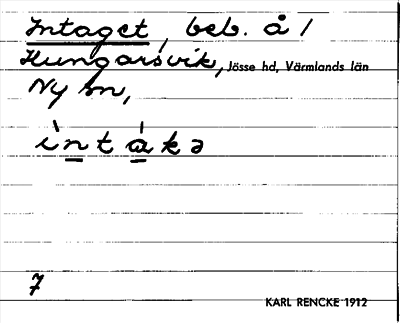 Intaget, beb. å 1
Hungarsvik, Jösse hd, Värmlands län
Ny sn,
ìntákə
7
KARL RENCKE 1912